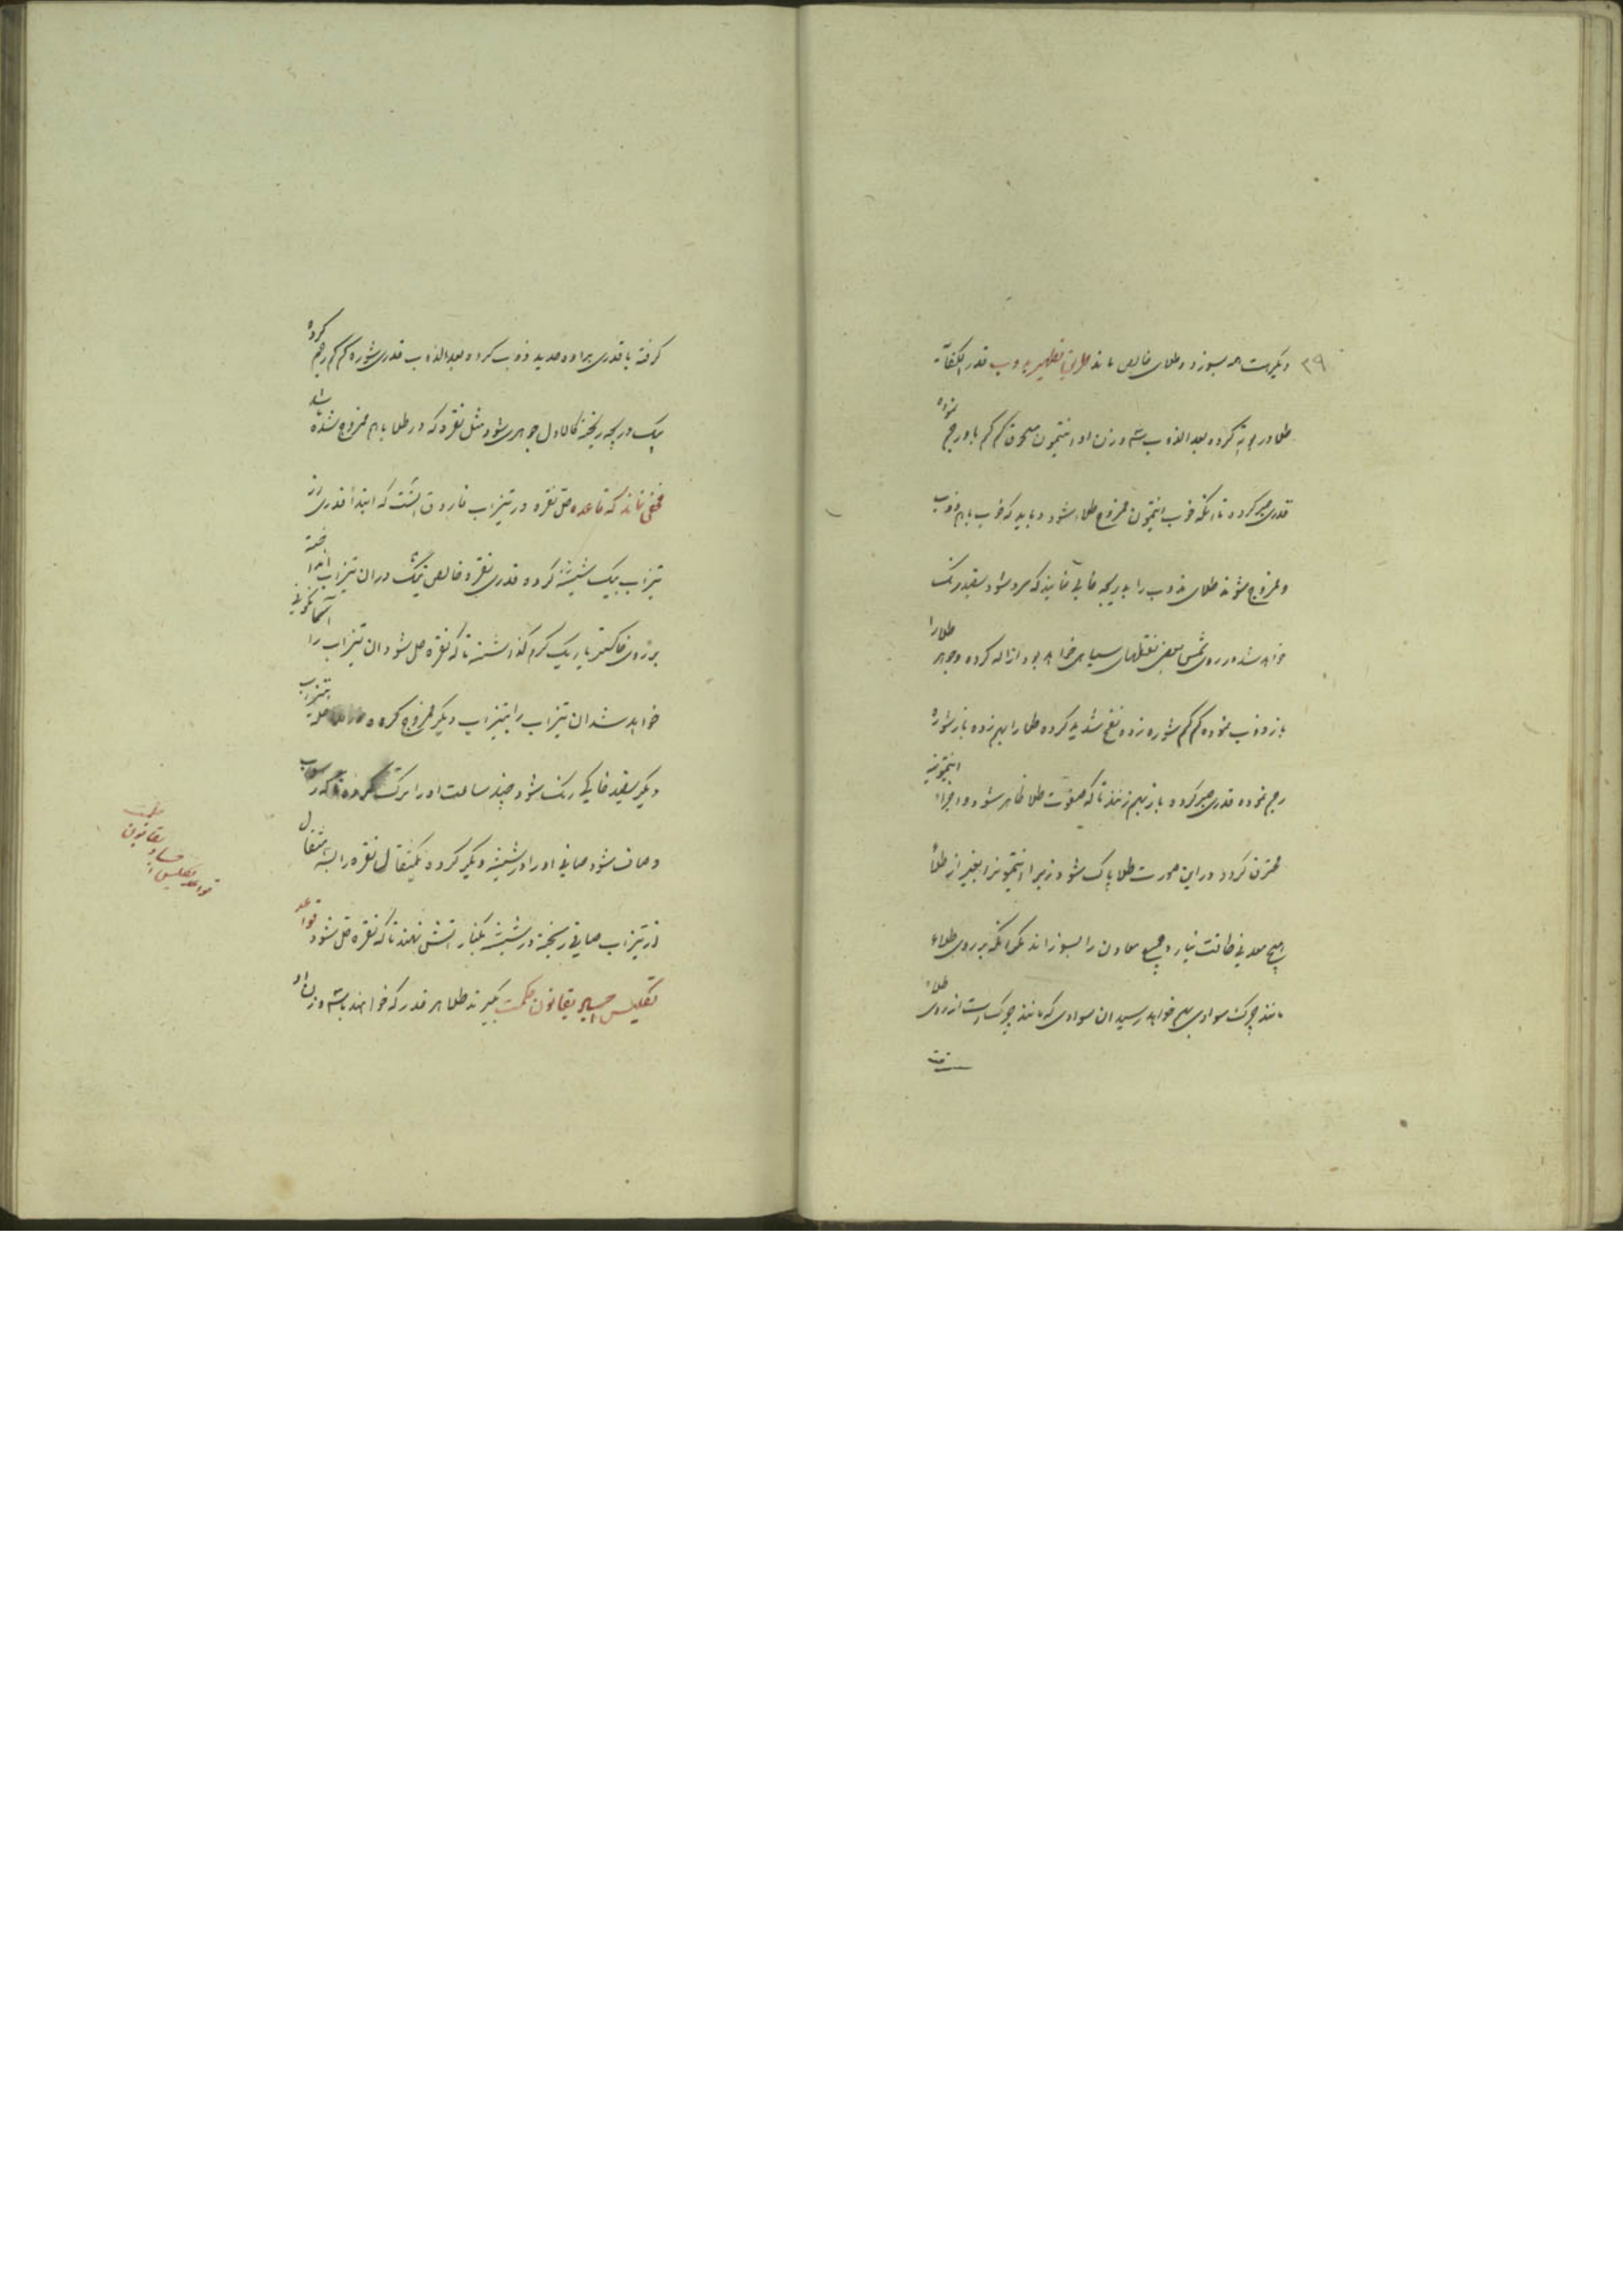 ۳۹ دیگرست همه بسوزد و طلای خالص ماند طریق تطهیر بذوب قدر الکفایه
طلا در بوته کرده بعد الذوب سه وزن او انتیمون مسحوق کم کم باو رجم نموده
قدری صبر کرده تا آنکه خوب انتیمون ممزوج طلا شود و باید که خوب باهم ذوب
و ممزوج شوند طلای مذوب را بدریجه خالی نمایند که سرد شود سفید رنگ
خواهد شد در روی شمس بعض ثقلهای سیاهی خواهد بود ازاله کرده و جوهر طلا را
باز ذوب نموده کم کم شوره زده نفخ شدید کرده طلا را بهم زده باز شوره
رجم نموده قدری صبر کرده باز بهم زنند تا که صفوت طلا ظاهر شود و اجزاء انتیمونیه
محترق گردد در این صورت طلا پاک شود زیرا انتیمون را بغیر از طلا
هیچ معدنی طاقت نیارد جمیع معادن را بسوزاند مگر آنکه بر روی طلاء
مانند چرک سوادی بهم خواهد رسید ان سوادی که مانند چرکست از روی طلاء
گرفته با قدری براده حدید ذوب کرده بعد الذوب قدری شوره کم کم رجم کرده
بیک دریجه ریخته کالاول جوهری شود مثل نقره که در طلا باهم ممزوج شده باشد
مخفی نماند که قاعده حل نقره در تیزاب فاروق اینست که ابتدا قدری از
تیزاب بیک شیشه کرده قدری نقره خالص تنک در ان تیزاب انداخته
بر روی خاکستر یا ریک گرم گذاشته تا که نقره حل شود ان تیزاب را آسمانگونی
خواهد شد ان تیزاب را بتیزاب دیگر ممزوج کرده بتیزاب
دیگر سفید خاکی رنگ شود چند ساعت او را ترک کرده تا که رسوب
و صاف شود صافی او را در شیشه دیگر کرده یکمثقال نقره را بسه مثقال
از تیزاب صافی ریخته در شیشه بکنار اتش نهند تا که نقره حل شود قواعد
تکلیس اجساد بقانون حکمت بگیرند طلا هر قدر که خواهند با سه وزن او
قواعد تکلیس اجساد بقانون حکمت